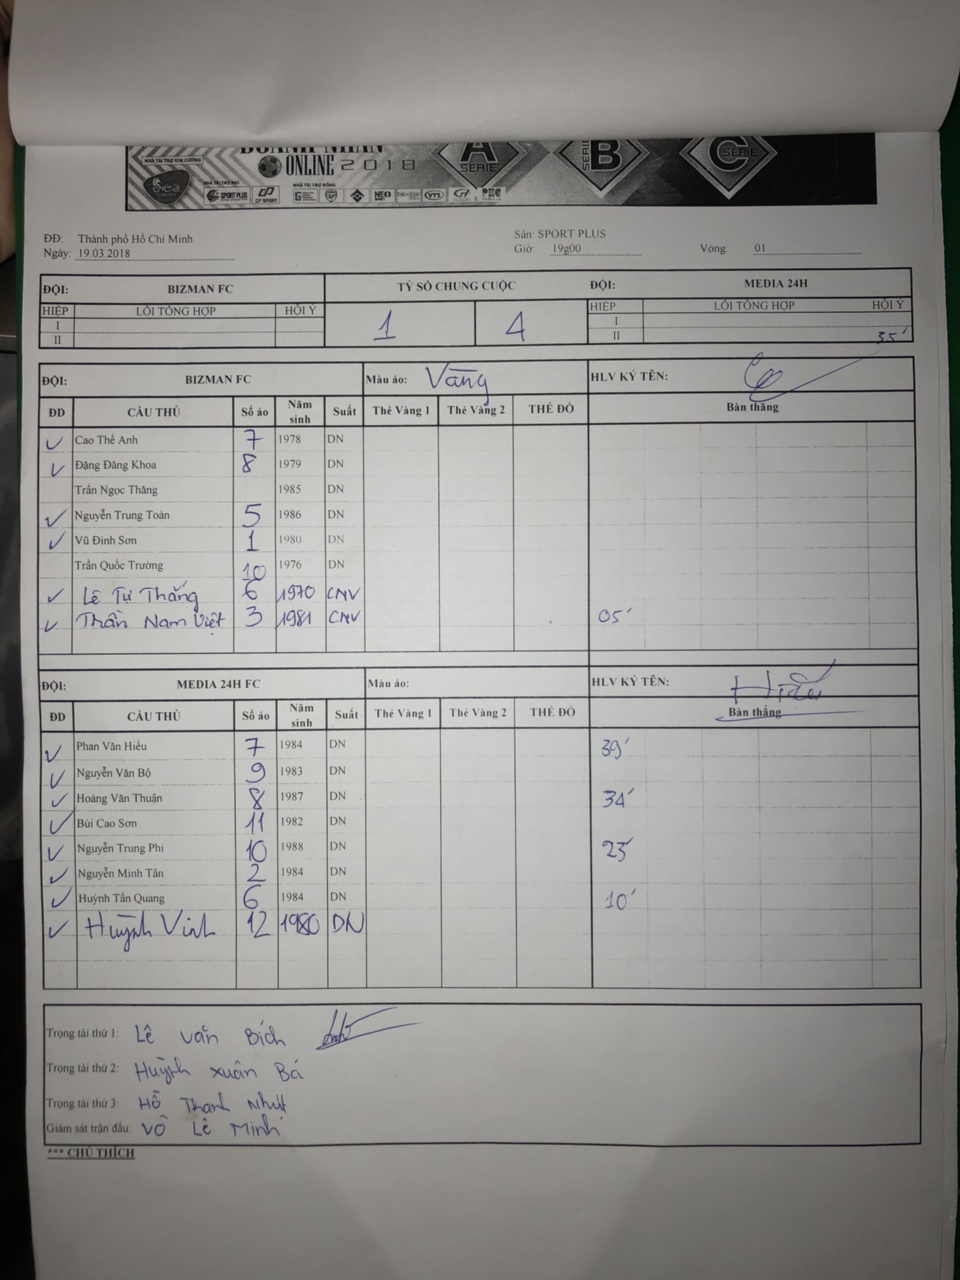 DOANH NHÂN
ONLINE 2018
A SERIE
B SERIE
C SERIE
NHÀ TÀI TRỢ KIM CƯƠNG
SPORT PLUS
CP SPORT
NEO
VTS
ĐĐ: Thành phố Hồ Chí Minh
Sân: SPORT PLUS
Ngày: 19.03.2018
Giờ: 19g00
Vòng: 01
ĐỘI: BIZMAN FC
TỶ SỐ CHUNG CUỘC
ĐỘI: MEDIA 24H
HIỆP LỖI TỔNG HỢP HỘI Ý
1 4
HIỆP LỖI TỔNG HỢP HỘI Ý
I I
II II 35'
ĐỘI: BIZMAN FC Màu áo: Vàng HLV KÝ TÊN:
ĐD CẦU THỦ Số áo Năm sinh Suất Thẻ Vàng 1 Thẻ Vàng 2 THẺ ĐỎ Bàn thắng
✓ Cao Thế Anh 7 1978 DN
✓ Đặng Đăng Khoa 8 1979 DN
Trần Ngọc Thăng 1985 DN
✓ Nguyễn Trung Toàn 5 1986 DN
✓ Vũ Đình Sơn 1 1980 DN
Trần Quốc Trường 10 1976 DN
✓ Lê Tự Thắng 6 1970 CNV
✓ Thần Nam Việt 3 1981 CNV 05'
ĐỘI: MEDIA 24H FC Màu áo: HLV KÝ TÊN: Hiếu
ĐD CẦU THỦ Số áo Năm sinh Suất Thẻ Vàng 1 Thẻ Vàng 2 THẺ ĐỎ Bàn thắng
✓ Phan Văn Hiếu 7 1984 DN 39'
✓ Nguyễn Văn Bộ 9 1983 DN
✓ Hoàng Văn Thuận 8 1987 DN 34'
✓ Bùi Cao Sơn 11 1982 DN
✓ Nguyễn Trung Phi 10 1988 DN 23'
✓ Nguyễn Minh Tân 2 1984 DN
✓ Huỳnh Tấn Quang 6 1984 DN 10'
✓ Huỳnh Vinh 12 1980 DN
Trọng tài thứ 1: Lê Văn Bích
Trọng tài thứ 2: Huỳnh Xuân Bá
Trọng tài thứ 3: Hồ Thanh Nhựt
Giám sát trận đấu: Võ Lê Minh
*** CHÚ THÍCH